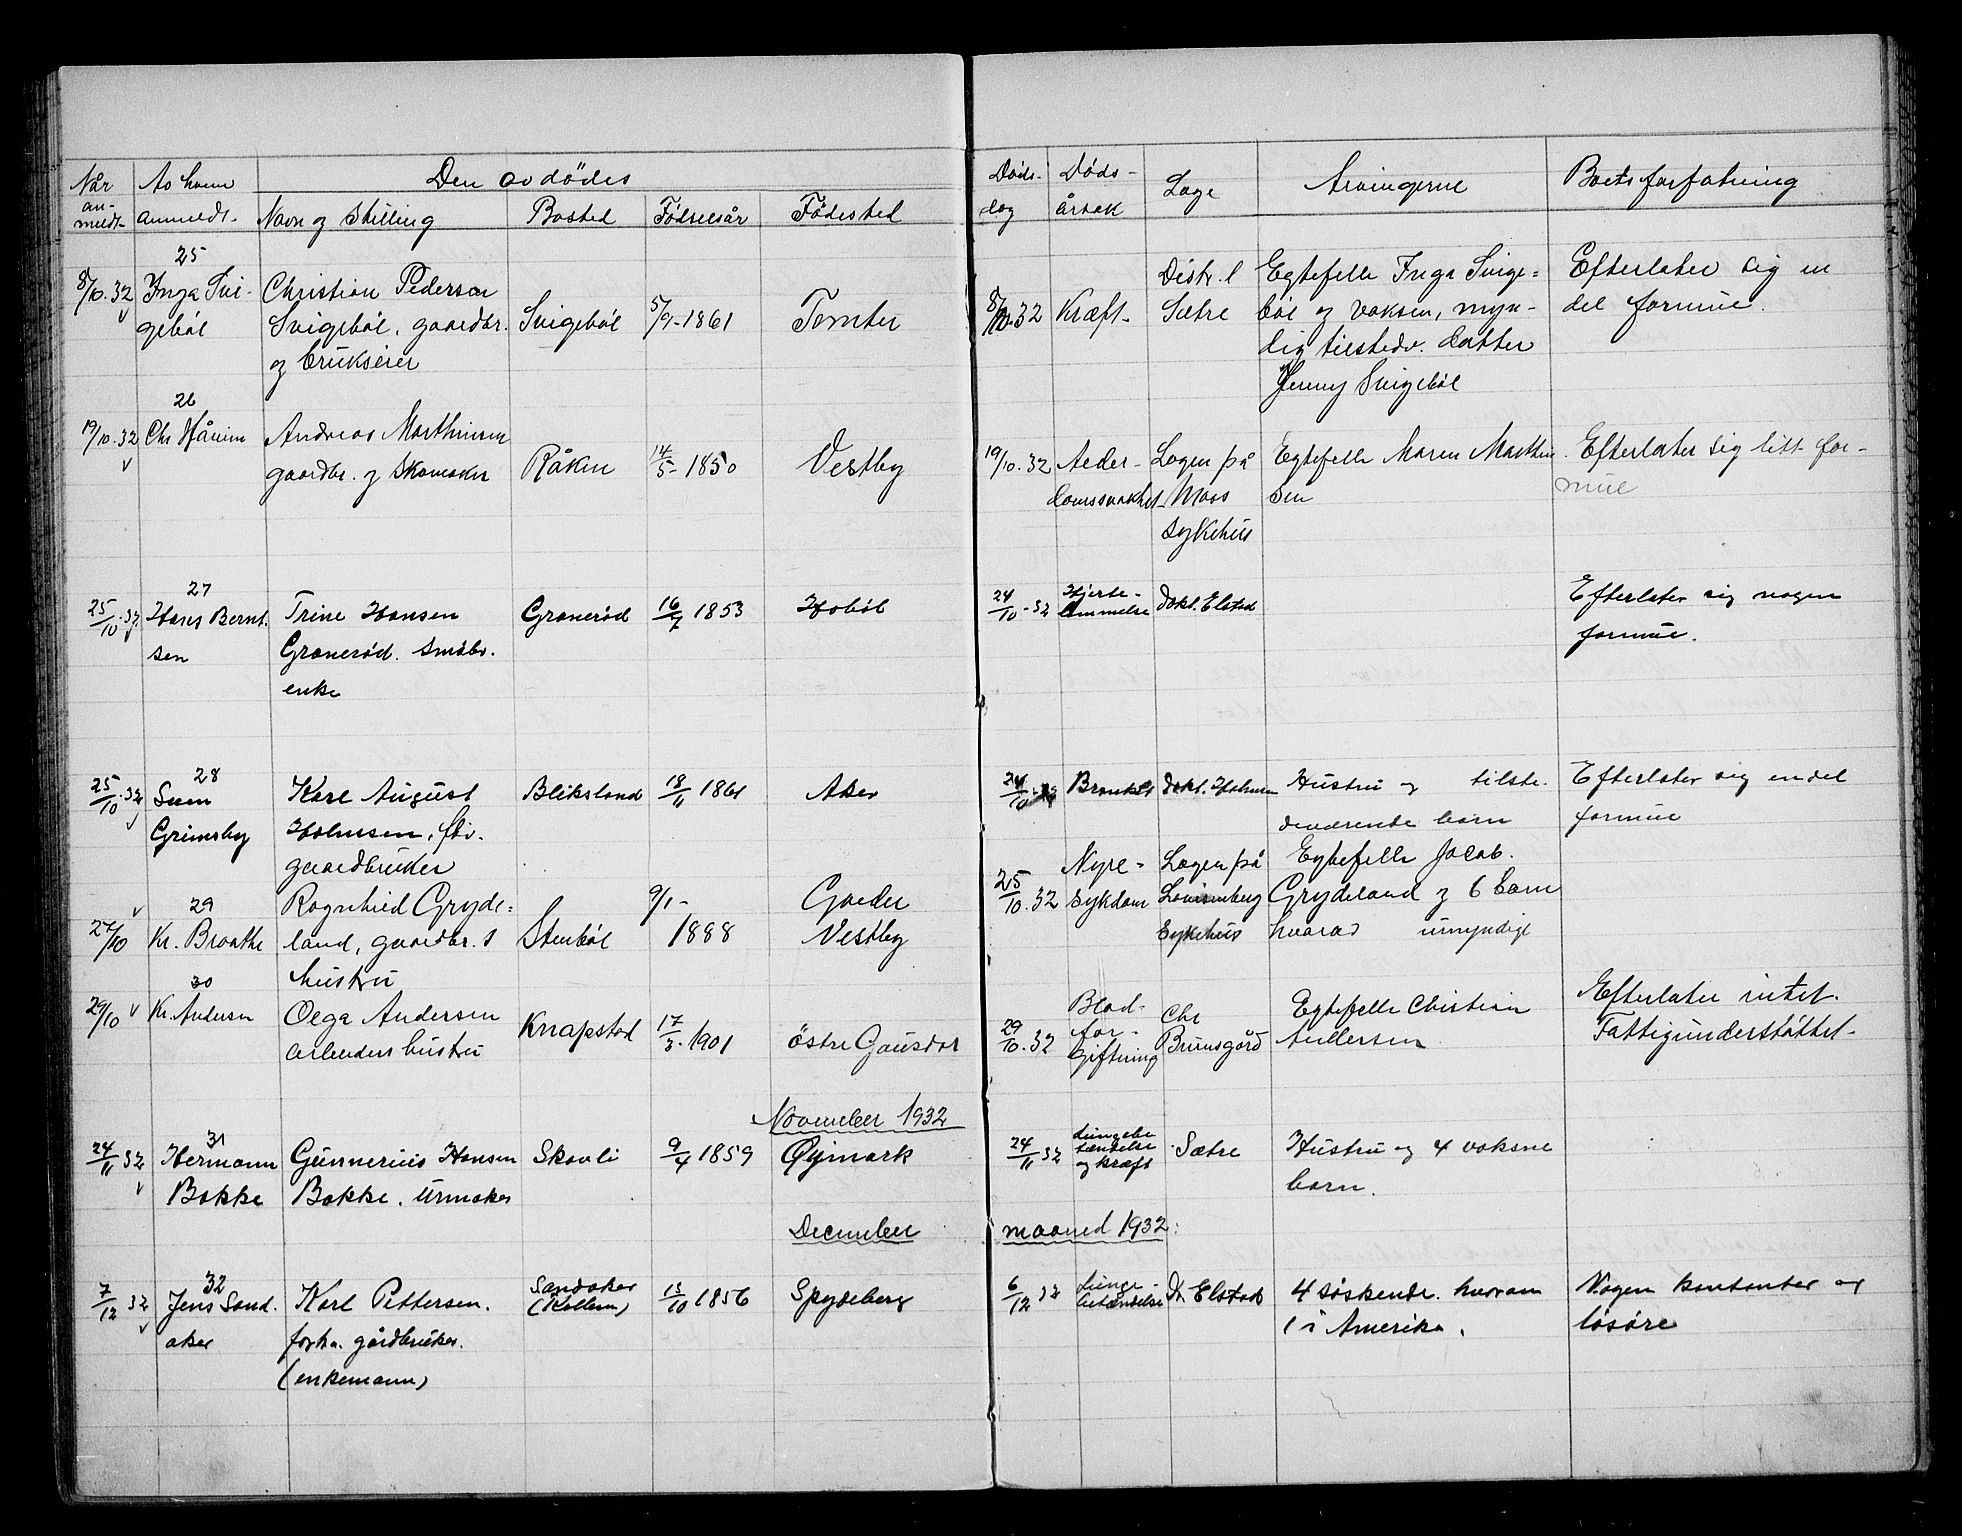 Når an-meldt- Av hvem anmeldt- Den avdödes Døds-dag Døds-årsak Læge Arvingerne Boets forfatning
Navn og Stilling Bosted Fødselsår Fødested
25
8/10.32 Inga Svi- Christian Pedersen Svigebøl 5/9-1861 Tomter 8/10.32 Kræft- Distr.l Egtefelle Inga Svige= Efterlater sig en
gebøl Svigebøl, gaardbr. Sætre bøl og voksen, myn- del formue.
og brukseier dig tilstedv. datter
Jenny Svigebøl
26
19/10.32 Chr Håreim Andreas Marthinsen Råken 14/5-1850 Vestby 19/10.32 Aeder- Lægen på Egtefelle Maren Marthin Efterlater sig litt for-
gaardbr. og skomaker domssvakhet- Moss sen mue
sykehus
27
25/10.32 Hans Bernt. Trine Hansen Granerød 16/7 1853 Hobøl 24/10-32 Hjerte- Dokt. Elstad Efterlater sig nogen
sen Granerød. Småbr. lammelse formue.
enke
28
25/10.32 Karl August Bliksland 18/11 1861 Aker 24/10 Dokt. Holmen Hustru og tilste. Efterlater sig endel
Grimsby Holmsen, fhv. deværende børn formue
gaardbruker
29
27/10 Kr. Braathe Ragnhild Gryde= Stenbøl 9/1-1888 Garder 25/10.32 Nyre- Lægen på Egtefelle Jacob.
land, gaardbr.s Vestby sykdom Lovisenberg Grydeland og 6 barn
hustru Sykehus hvorav umyndige
30
29/10 Kr. Andersen Olga Andersen Knapstad 17/3-1901 östre Gausdal 29/10.32 Blod- Chr Egtefelle Christian Efterlater intet.
arbeiders hustru for- Brunsgård Andersen Fattigunderstøttet-
giftning
November 1932
31
24/11 32 Hermann Gunnerius Hansen Skovli 9/4 1859 Øymark 24/11 32 Lungebe Sætre Hustru og 4 voksne
Bakke Bakke. Urmaker tændelse barn.
og kræft
December maaned 1932:
32
7/12 32 Jens Sand. Karl Pettersen. Sandaker 13/10 1856 Spydeberg 6/12 32 Lunge- Dr. Elstad 4 søskende. hvorav Nogen kontanter og
aker forhv. gårdbruker. betændelse 1 i Amerika. løsøre
(enkemann)